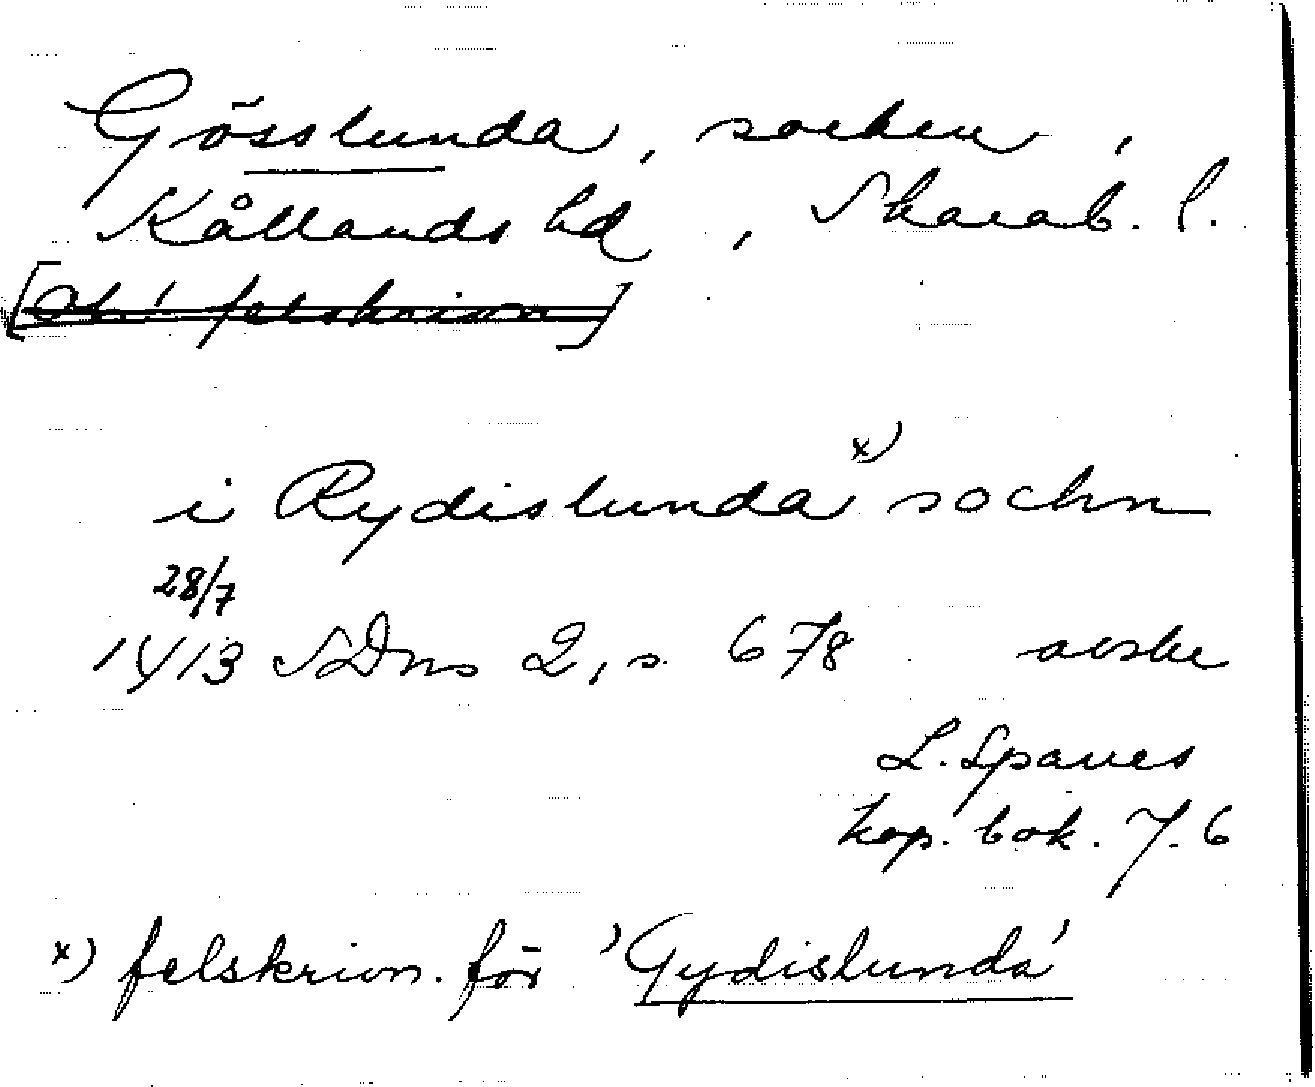 Gösslunda, socken,
Kållands hd, Skarab. l.
felskrivn
i Rydislunda x) sochn
28/7
1413 SDns 2, s. 678 avskr
L. Sparres
kop. bok. f. 6
x) felskrivn. för 'Gydislunda'